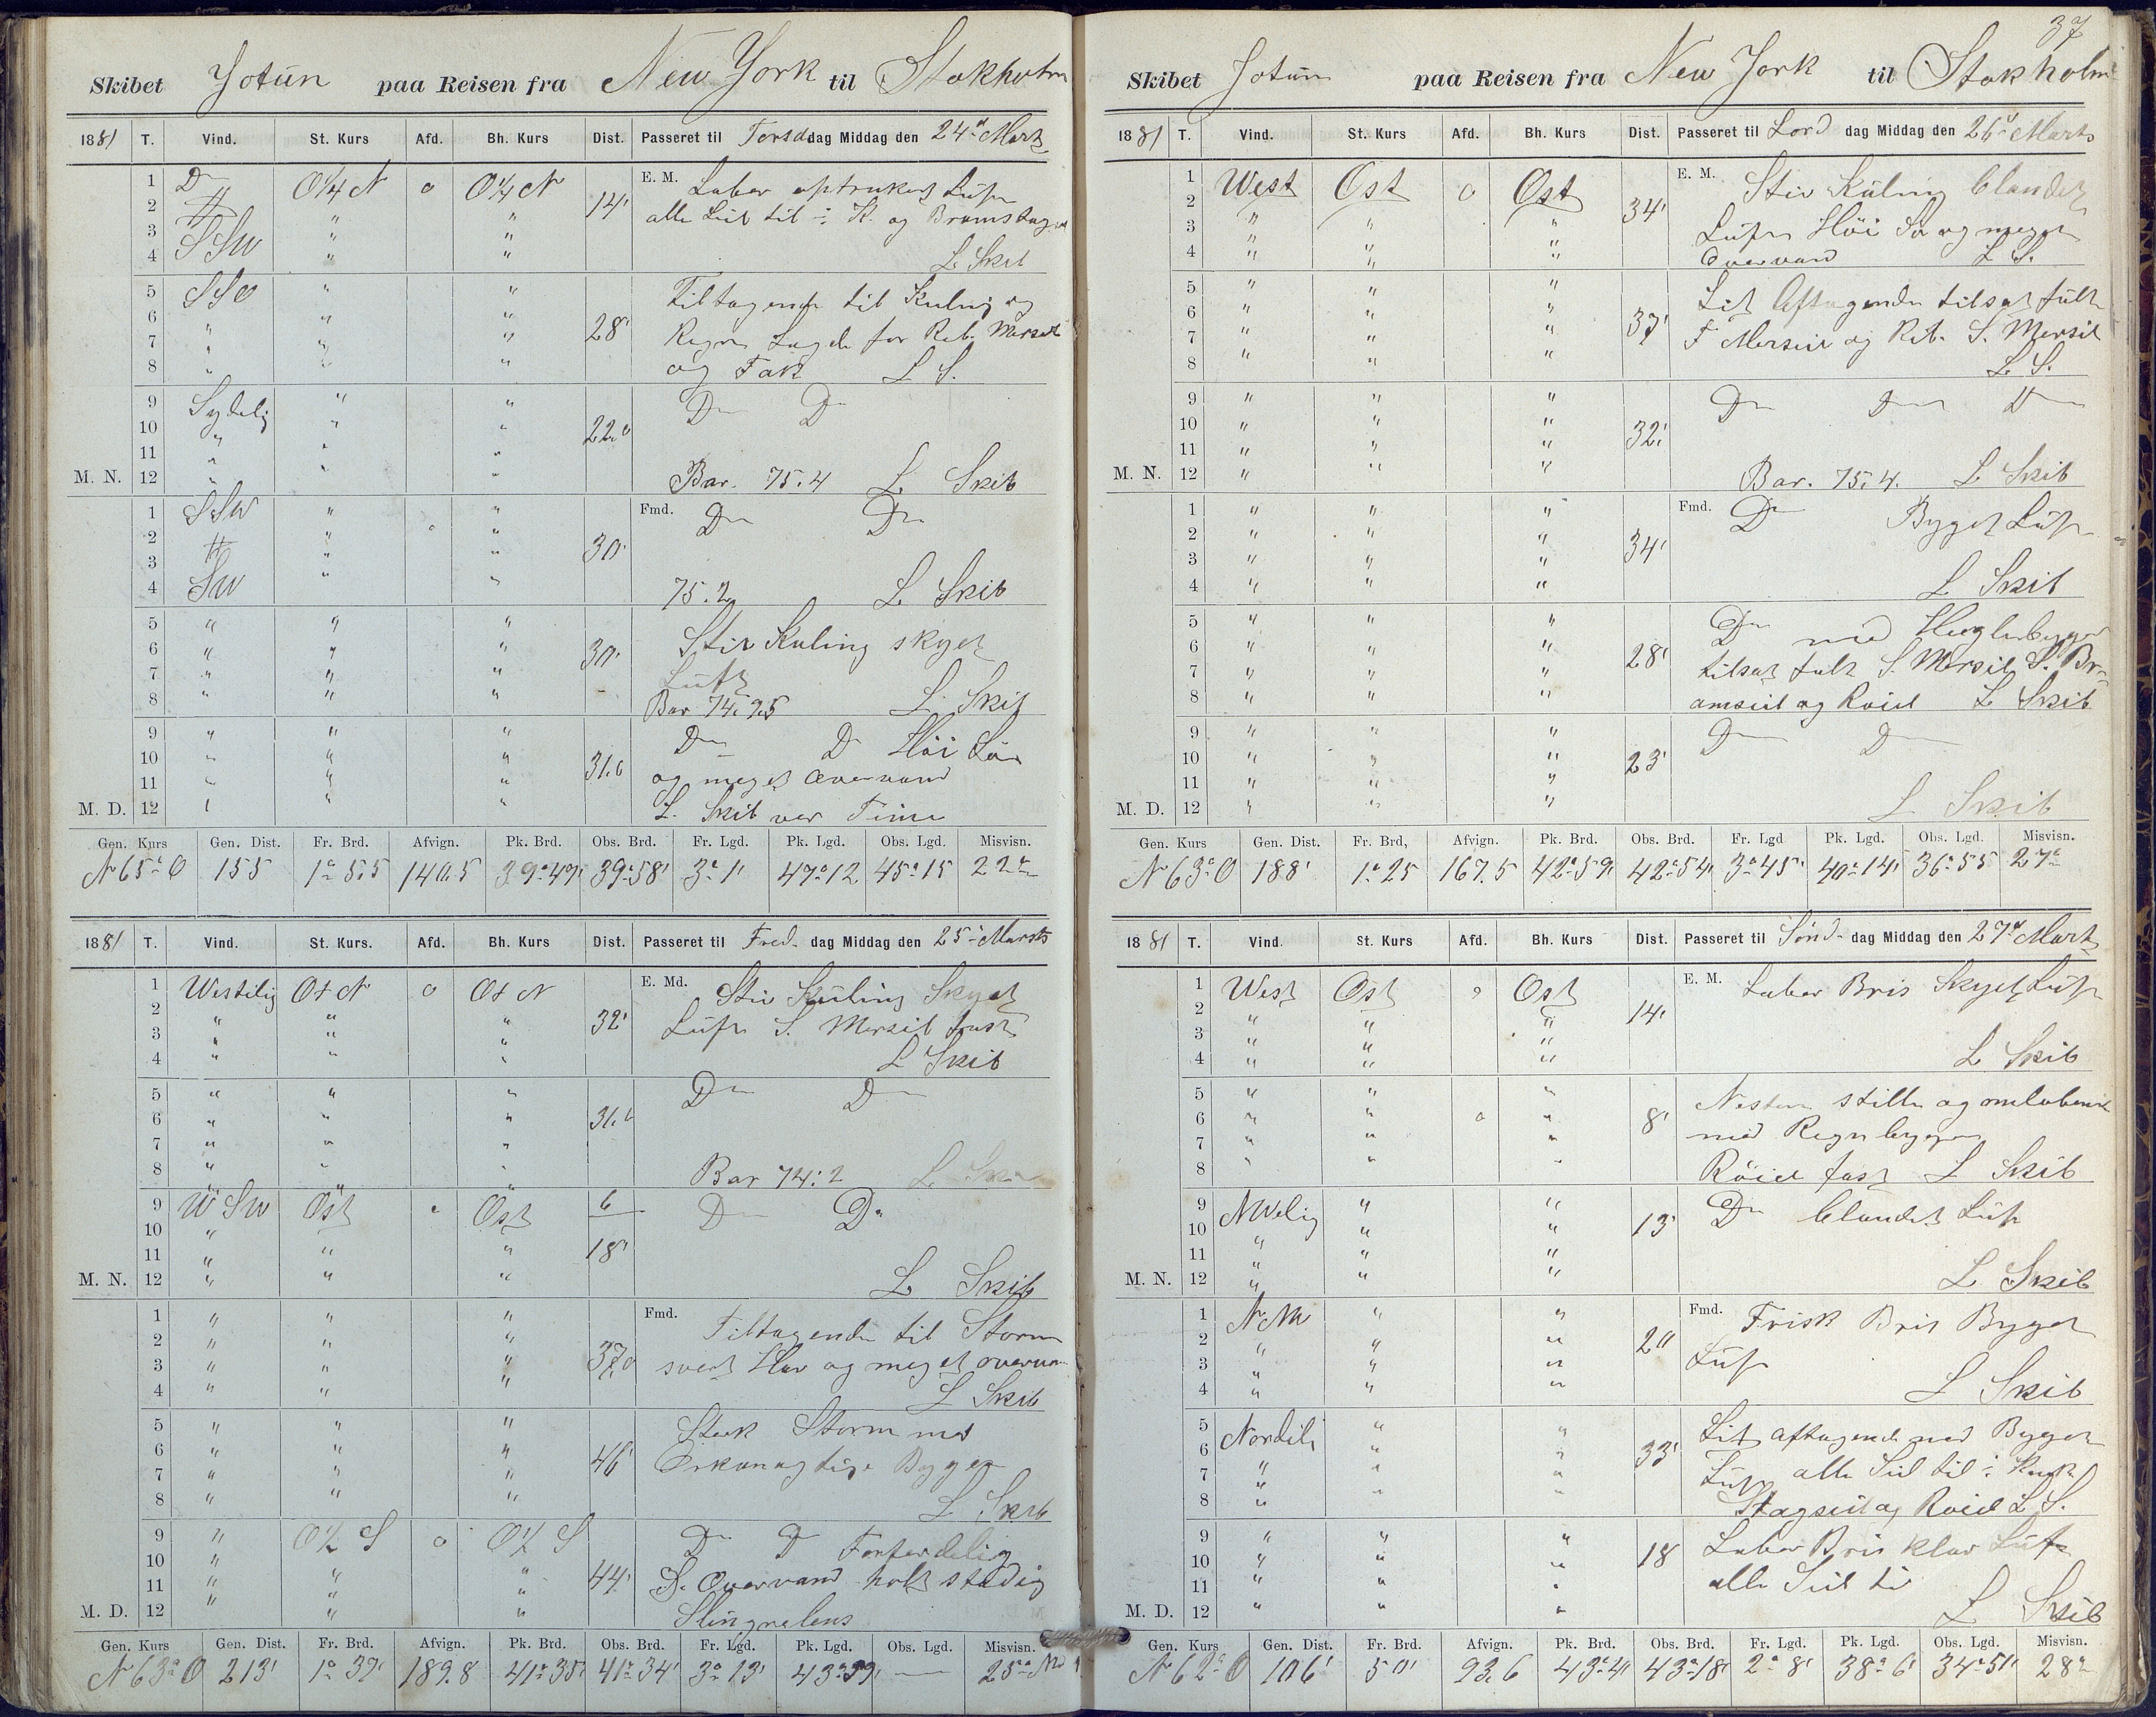 Skibet Jotun paa Reisen fra New York til Stokholm
1881 T. Vind. St. Kurs Afd. Bh. Kurs Dist. Passeret til Torsd dag Middag den 24d Marts
1 Do O¼N 0 O¼N E. M. Laber optrukket Luft
2 " " " 14' alle Seil til ÷ K. og Bramstags
3 SSW " "
4 " " L. Skib
5 SSO " " Tiltagende til Kuling og
6 " " 28' Regn Lagde for Reb. Mersseil
7 " " " og Fok L S.
8 " " "
9 Sydelig " " Do Do
10 " " 22.0
11 " " "
M. N. 12 " " " Bar. 75.4 L Skib
1 SSW " " Fmd. Do Do
2 " 0 " 30'
3 " "
4 SW " " 75.2 L Skib
5 " " " Stiv Kuling skyet
6 " " " 30' Luft
7 " " "
8 " " " Bar 74.95 L. Skib
9 " " " Do Do Höi Sö
10 " " " 31.6 og meget Overvand
11 " " "
M. D. 12 " " " L. Skib ver Time
Gen. Kurs Gen. Dist. Fr. Brd. Afvign. Pk. Brd. Obs. Brd. Fr. Lgd. Pk. Lgd. Obs. Lgd. Misvisn.
N65°O 155 1° 5.5 140.5 39°49' 39°58' 3° 1' 47°12 45°15 22°
1881 T. Vind. St. Kurs. Afd. Bh. Kurs Dist. Passeret til Fred- dag Middag den 25d Marts
1 Westelig OtN 0 OtN E. Md. Stiv Kuling Skyet
2 " " " 32' Luft S. Merseil fast
3 " " "
4 " " " L Skib
5 " " " Do Do
6 " " " 31.6
7 " " "
8 " " " Bar 74:2 L Skib
9 WSW Ost 0 Ost 6 Do Do
10 " " " 18'
11 " " "
M. N. 12 " " " L Skib
1 " " " Fmd. Tiltagende til Storm
2 " " " 37.0 svert Hav og meget overvan
3 " " "
4 " " " L Skib
5 " " " Sterk Storm med
6 " " " 46' Orkanagtige Byger
7 " " "
8 " " " L. Skib
9 " O½S 0 O½S Do Do Forferdelig
10 " " " 44' S. Overvand holt stadig
11 " " "
M. D. 12 " " " Slingrelens
Gen. Kurs Gen. Dist. Fr. Brd. Afvign. Pk. Brd. Obs. Brd. Fr. Lgd. Pk. Lgd. Obs. Lgd. Misvisn.
N63°O 213' 1° 39' 189.8 41°35' 41°34' 3° 13' 43°59' — 25°
37
Skibet Jotun paa Reisen fra New York til Stokholm
1881 T. Vind. St. Kurs Afd. Bh. Kurs Dist. Passeret til Lørd dag Middag den 26d Marts
1 West Ost 0 Ost E. M. Stiv Kuling blandet
2 " " " 34' Luft Höi Sö og meget
3 " " " Overvand L S.
4 " " "
5 " " " Lit Aftagende tilsat fult
6 " " " 37' F Merseil og Reb. S. Merseil
7 " " "
8 " " " L. S.
9 " " " Do Do Do
10 " " " 32'
11 " " "
M. N. 12 " " " Bar. 75.4. L Skib
1 " " " Fmd. Do Byget Luft
2 " " " 34'
3 " " "
4 " " " L Skib
5 " " " Do med Haglbyger
6 " " " 28' tilsat fult S. Merseil S. Br-
7 " " " amseil og Röiel L Skib
8 " " "
9 " " " Do Do
10 " " " 23'
11 " " "
M. D. 12 " " " L Skib
Gen. Kurs Gen. Dist. Fr. Brd, Afvign. Pk. Brd. Obs. Brd. Fr. Lgd Pk. Lgd. Obs. Lgd. Misvisn.
N63°O 188' 1° 25 167.5 42°59' 42°54' 3°45' 40°14' 36°55' 27°
1881 T. Vind. St. Kurs Afd. Bh. Kurs Dist. Passeret til Sönd- dag Middag den 27d Marts
1 West Ost 0 Ost E. M. Laber Bris Skyet Luft
2 " " " 14'
3 " " "
4 " " " L Skib
5 " " " Nesten stille og omlobende
6 " " 0 " 8' med Regnbyger
7 " " "
8 " " " Röiel fast L Skib
9 NWelig " " Do blandet Luft
10 " " 13'
11 " " "
M. N. 12 " " " L Skib
1 NNW " " Fmd. Frisk Bris Byget
2 " " " 20 Luft
3 " " "
4 " " " L Skib
5 Nordeli " " Lit aftagende med Byget
6 " " 33' Luft alle Seil til ÷
7 " " "
8 " " " Stagseil og Röiel L S.
9 " " " Laber Bris klar Luft
10 " " " 18 alle Seil til
11 " " "
M. D. 12 " " " L Skib
Gen. Kurs Gen. Dist. Fr. Brd. Afvign. Pk. Brd. Obs. Brd. Fr. Lgd. Pk. Lgd. Obs. Lgd. Misvisn.
N62°O 106' 50' 93.6 43°4' 43°18' 2° 8' 38° 6' 34°51' 28°